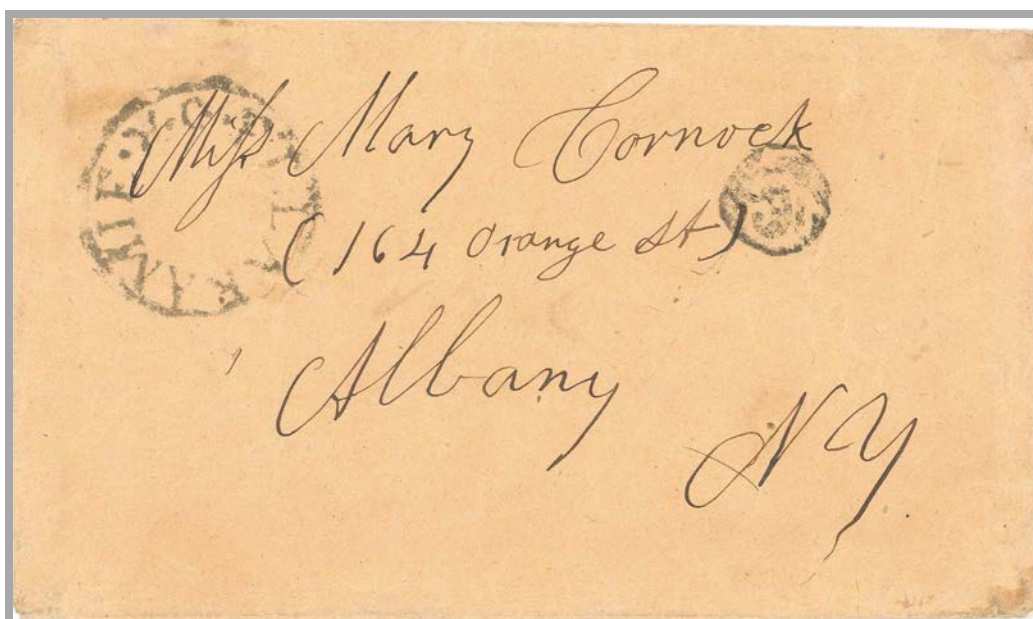 Miss Mary Cornock
(164 Orange St)
Albany
NY